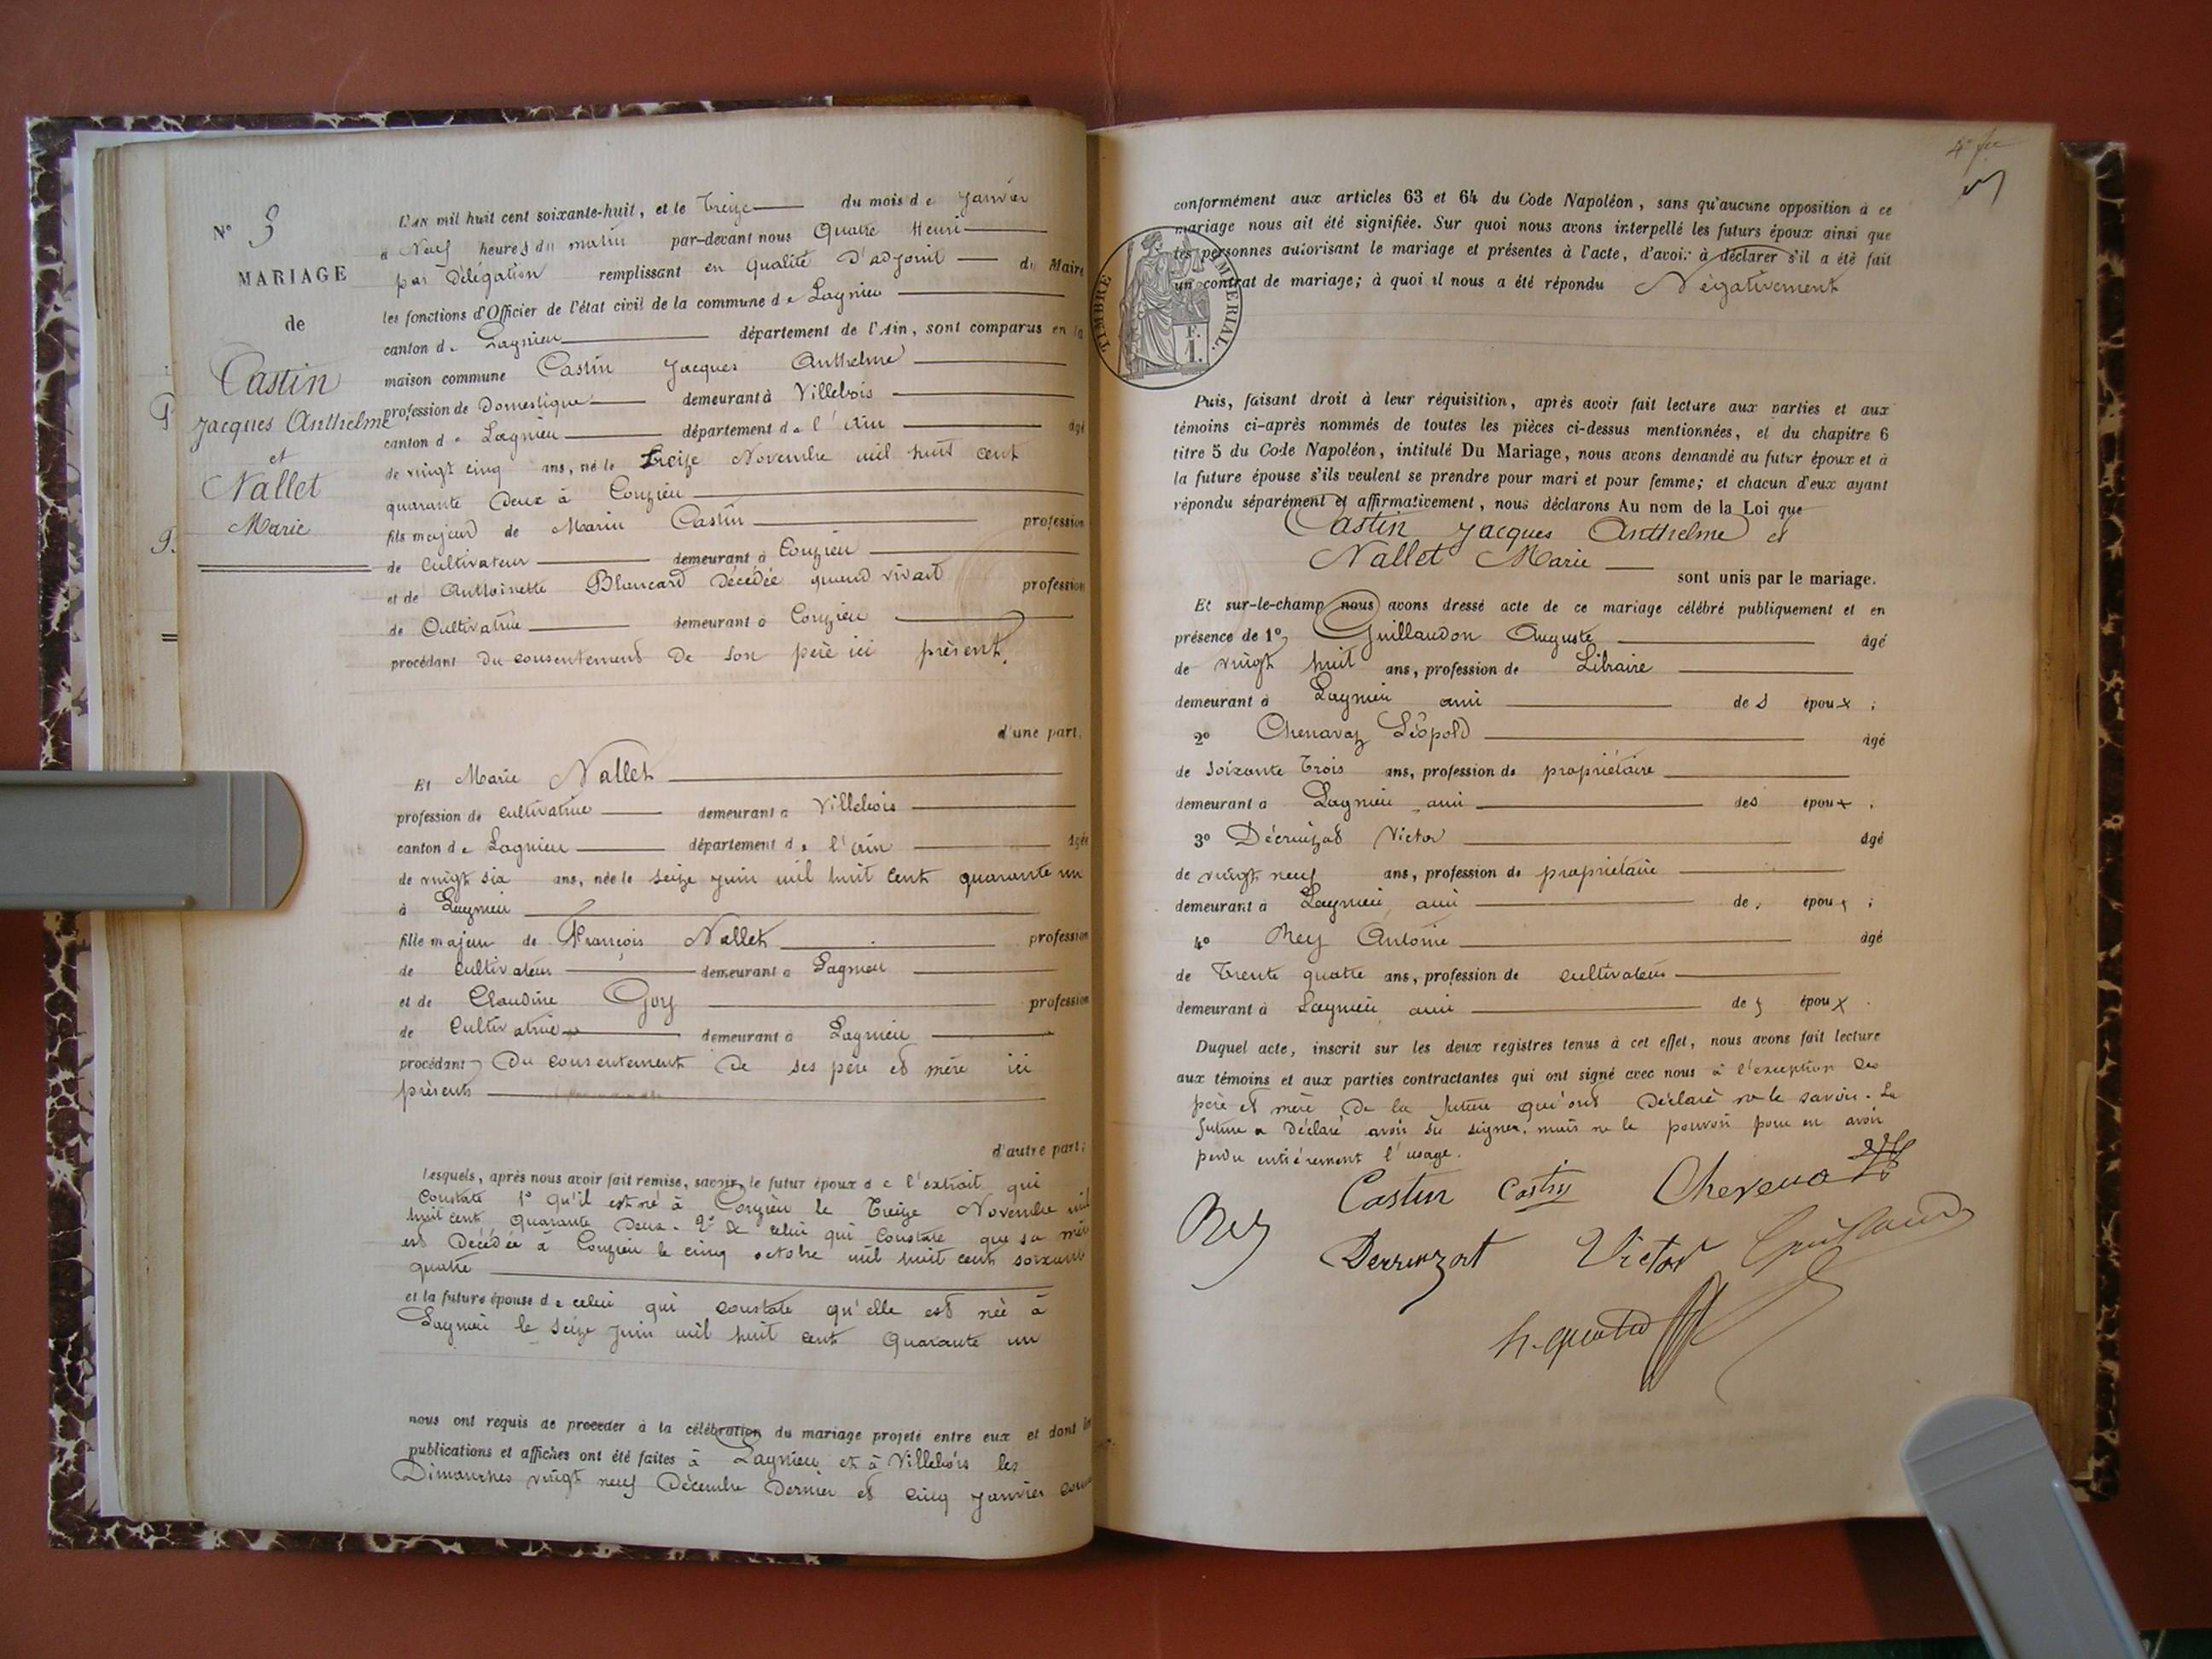 N° 3
MARIAGE
de
Castin
Jacques Anthelme
et
Nallet
Marie
L'AN mil huit cent soixante-huit, et le treize du mois de Janvier
à Neuf heures du matin par-devant nous Henri
par Délégation remplissant en qualité D'adjoint du Maire
les fonctions d'Officier de l'état civil de la commune de Lagnieu
canton de Lagnieu département de l'Ain, sont comparus en la
maison commune Castin Jacques Anthelme
profession de Domestique demeurant à Villebois
canton de Lagnieu département de l'Ain âgé
de vingt cinq ans, né le treize Novembre mil huit cent
quarante deux à Conzieu
fils majeur de Marin Castin profession
de Cultivateur demeurant à Conzieu
et de Anthoinette Blancard Décédée quand vivait profession
de Cultivatrice demeurant à Conzieu
procédant Du consentement De son père ici présent.
d'une part;
Et Marie Nallet
profession de cultivatrice demeurant à Villebois
canton de Lagnieu département de l'Ain âgée
de vingt six ans, née le seize juin mil huit cent quarante un
à Lagnieu
fille majeure de François Nallet profession
de Cultivateur demeurant à Lagnieu
et de Claudine Goy profession
de Cultivatrice demeurant à Lagnieu
procédant Du consentement De ses père et mère ici
présents
d'autre part;
Lesquels, après nous avoir fait remise, savoir, le futur époux de l'extrait qui
Constate 1° qu'il est né à Conzieu le Treize Novembre mil
huit cent quarante Deux. 2° De celui qui Constate que sa mère
est Décédée à Conzieu le cinq octobre mil huit cent soixante
quatre
et la future épouse de celui qui constate qu'elle est née à
Lagnieu le seize Juin mil huit cent Quarante un
nous ont requis de procéder à la célébration du mariage projeté entre eux et dont les
publications et affiches ont été faites à Lagnieu et à Villebois les
Dimanches vingt neuf Décembre Dernier et cinq Janvier
4e
conformément aux articles 63 et 64 du Code Napoléon, sans qu'aucune opposition à ce
mariage nous ait été signifiée. Sur quoi nous avons interpellé les futurs époux ainsi que
les personnes autorisant le mariage et présentes à l'acte, d'avoir à déclarer s'il a été fait
un contrat de mariage; à quoi il nous a été répondu Négativement
TIMBRE IMPÉRIAL.
F.
1.
Puis, faisant droit à leur réquisition, après avoir fait lecture aux parties et aux
témoins ci-après nommés de toutes les pièces ci-dessus mentionnées, et du chapitre 6
titre 5 du Code Napoléon, intitulé Du Mariage, nous avons demandé au futur époux et à
la future épouse s'ils veulent se prendre pour mari et pour femme; et chacun d'eux ayant
répondu séparément et affirmativement, nous déclarons Au nom de la Loi que
Castin Jacques Anthelme et
Nallet Marie
sont unis par le mariage.
Et sur-le-champ nous avons dressé acte de ce mariage célébré publiquement et en
présence de 1° Guillaudon Auguste âgé
de vingt huit ans, profession de Libraire
demeurant à Lagnieu ami des époux ;
2° Chenavaz Léopold âgé
de soixante Trois ans, profession de propriétaire
demeurant à Lagnieu ami des époux ;
3° Victor âgé
de vingt neuf ans, profession de propriétaire
demeurant à Lagnieu ami des époux ;
4° Rey Antoine âgé
de Trente quatre ans, profession de cultivateur
demeurant à Lagnieu ami des époux .
Duquel acte, inscrit sur les deux registres tenus à cet effet, nous avons fait lecture
aux témoins et aux parties contractantes qui ont signé avec nous à l'exception des
père et mère De la future qui ont Déclaré ne le savoir. La
future a Déclaré avoir su signer, mais ne le pouvoir pour en avoir
perdu entièrement l'usage.
Castin Castin
Rey
Victor